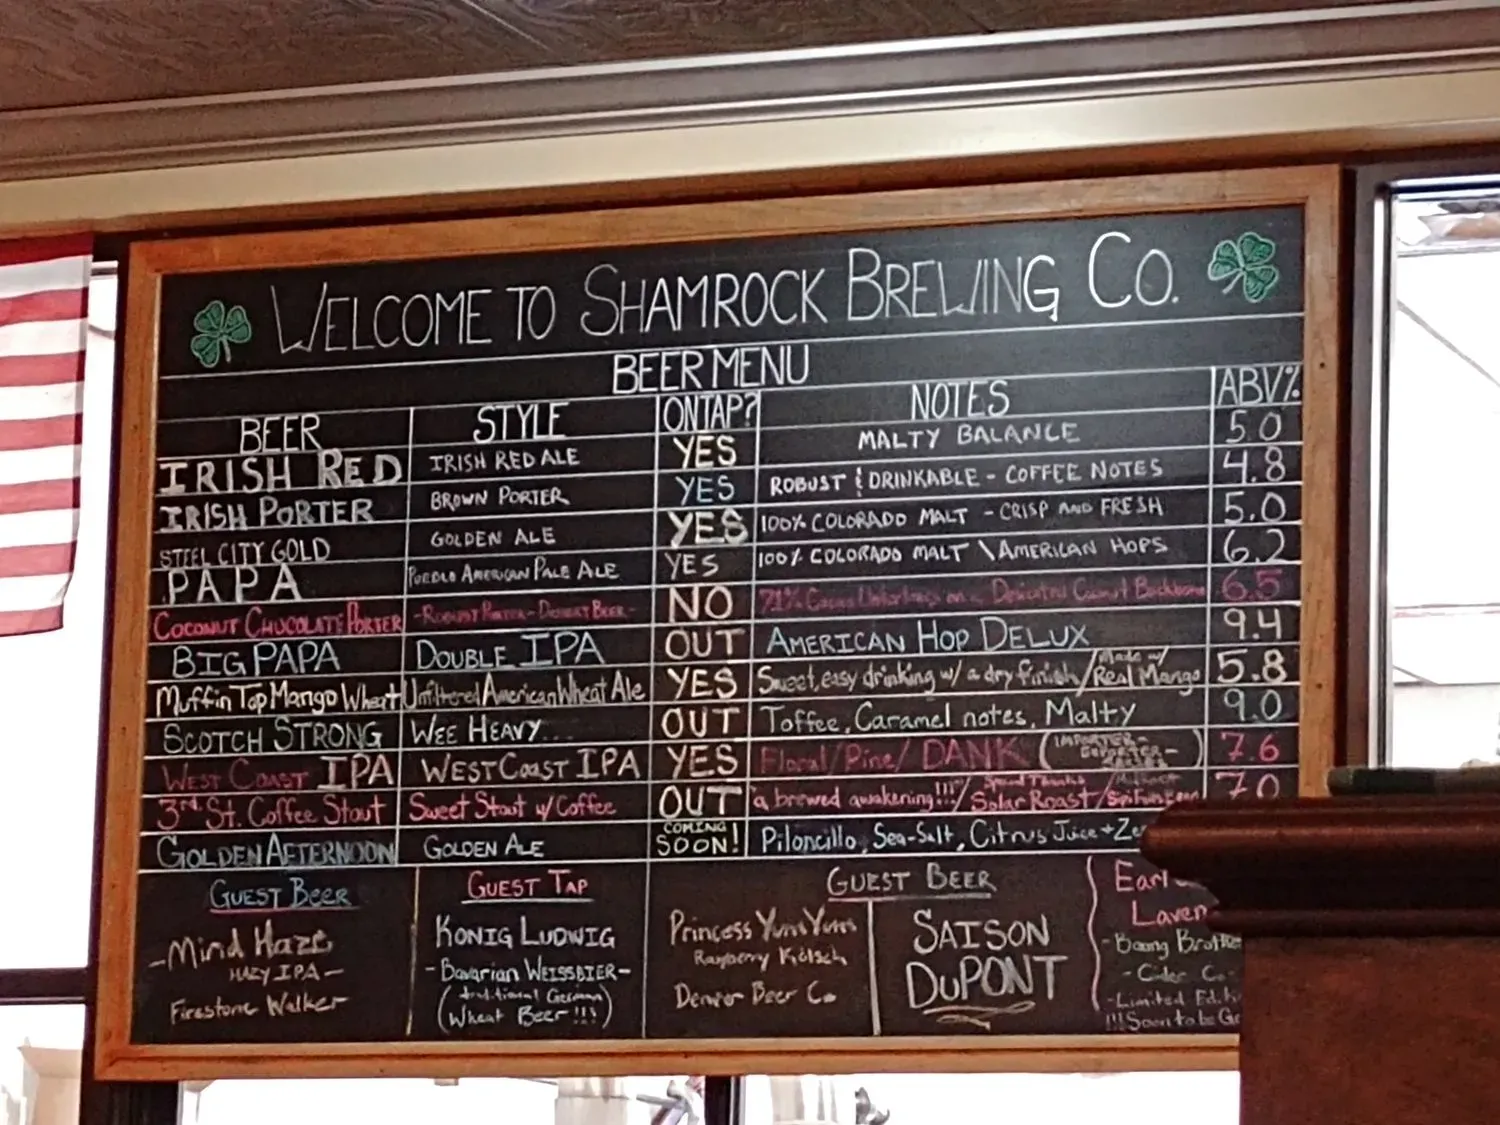 WELCOME TO SHAMROCK BREWING CO.
BEER MENU
BEER STYLE ON TAP? NOTES ABV%
IRISH RED IRISH RED ALE YES MALTY BALANCE 5.0
IRISH PORTER BROWN PORTER YES ROBUST & DRINKABLE - COFFEE NOTES 4.8
STEEL CITY GOLD GOLDEN ALE YES 100% COLORADO MALT - CRISP AND FRESH 5.0
PAPA PUEBLO AMERICAN PALE ALE YES 100% COLORADO MALT \ AMERICAN HOPS 6.2
COCONUT CHUCOLATE PORTER - ROBUST PORTER - DESSERT BEER - NO 71% Cacao on a Coconut Backbone 6.5
BIG PAPA DOUBLE IPA OUT AMERICAN HOP DELUX 9.4
Muffin Top Mango Wheat Unfiltered American Wheat Ale YES Sweet, easy drinking w/ a dry finish / Made w/ Real Mango 5.8
SCOTCH STRONG WEE HEAVY... OUT Toffee, Caramel notes, Malty 9.0
WEST COAST IPA WEST COAST IPA YES Floral / Pine / DANK 7.6
3rd. St. Coffee Stout Sweet Stout w/ Coffee OUT "a brewed awakening!!!" / Special Thanks Solar Roast / 7.0
GOLDEN AFTERNOON GOLDEN ALE COMING SOON! Piloncillo, Sea-Salt, Citrus Juice + Ze
GUEST BEER
- Mind Haze
HAZY IPA -
Firestone Walker
GUEST TAP
KONIG LUDWIG
- Bavarian WEISSBIER -
(traditional German
Wheat Beer!!!)
GUEST BEER
Princess Yum Yum
Raspberry Kölsch
Denver Beer Co
SAISON
DUPONT
Earl
Laven
- Boang Brothe
- Cider Co -
- Limited Edit
!!! Soon to be Go